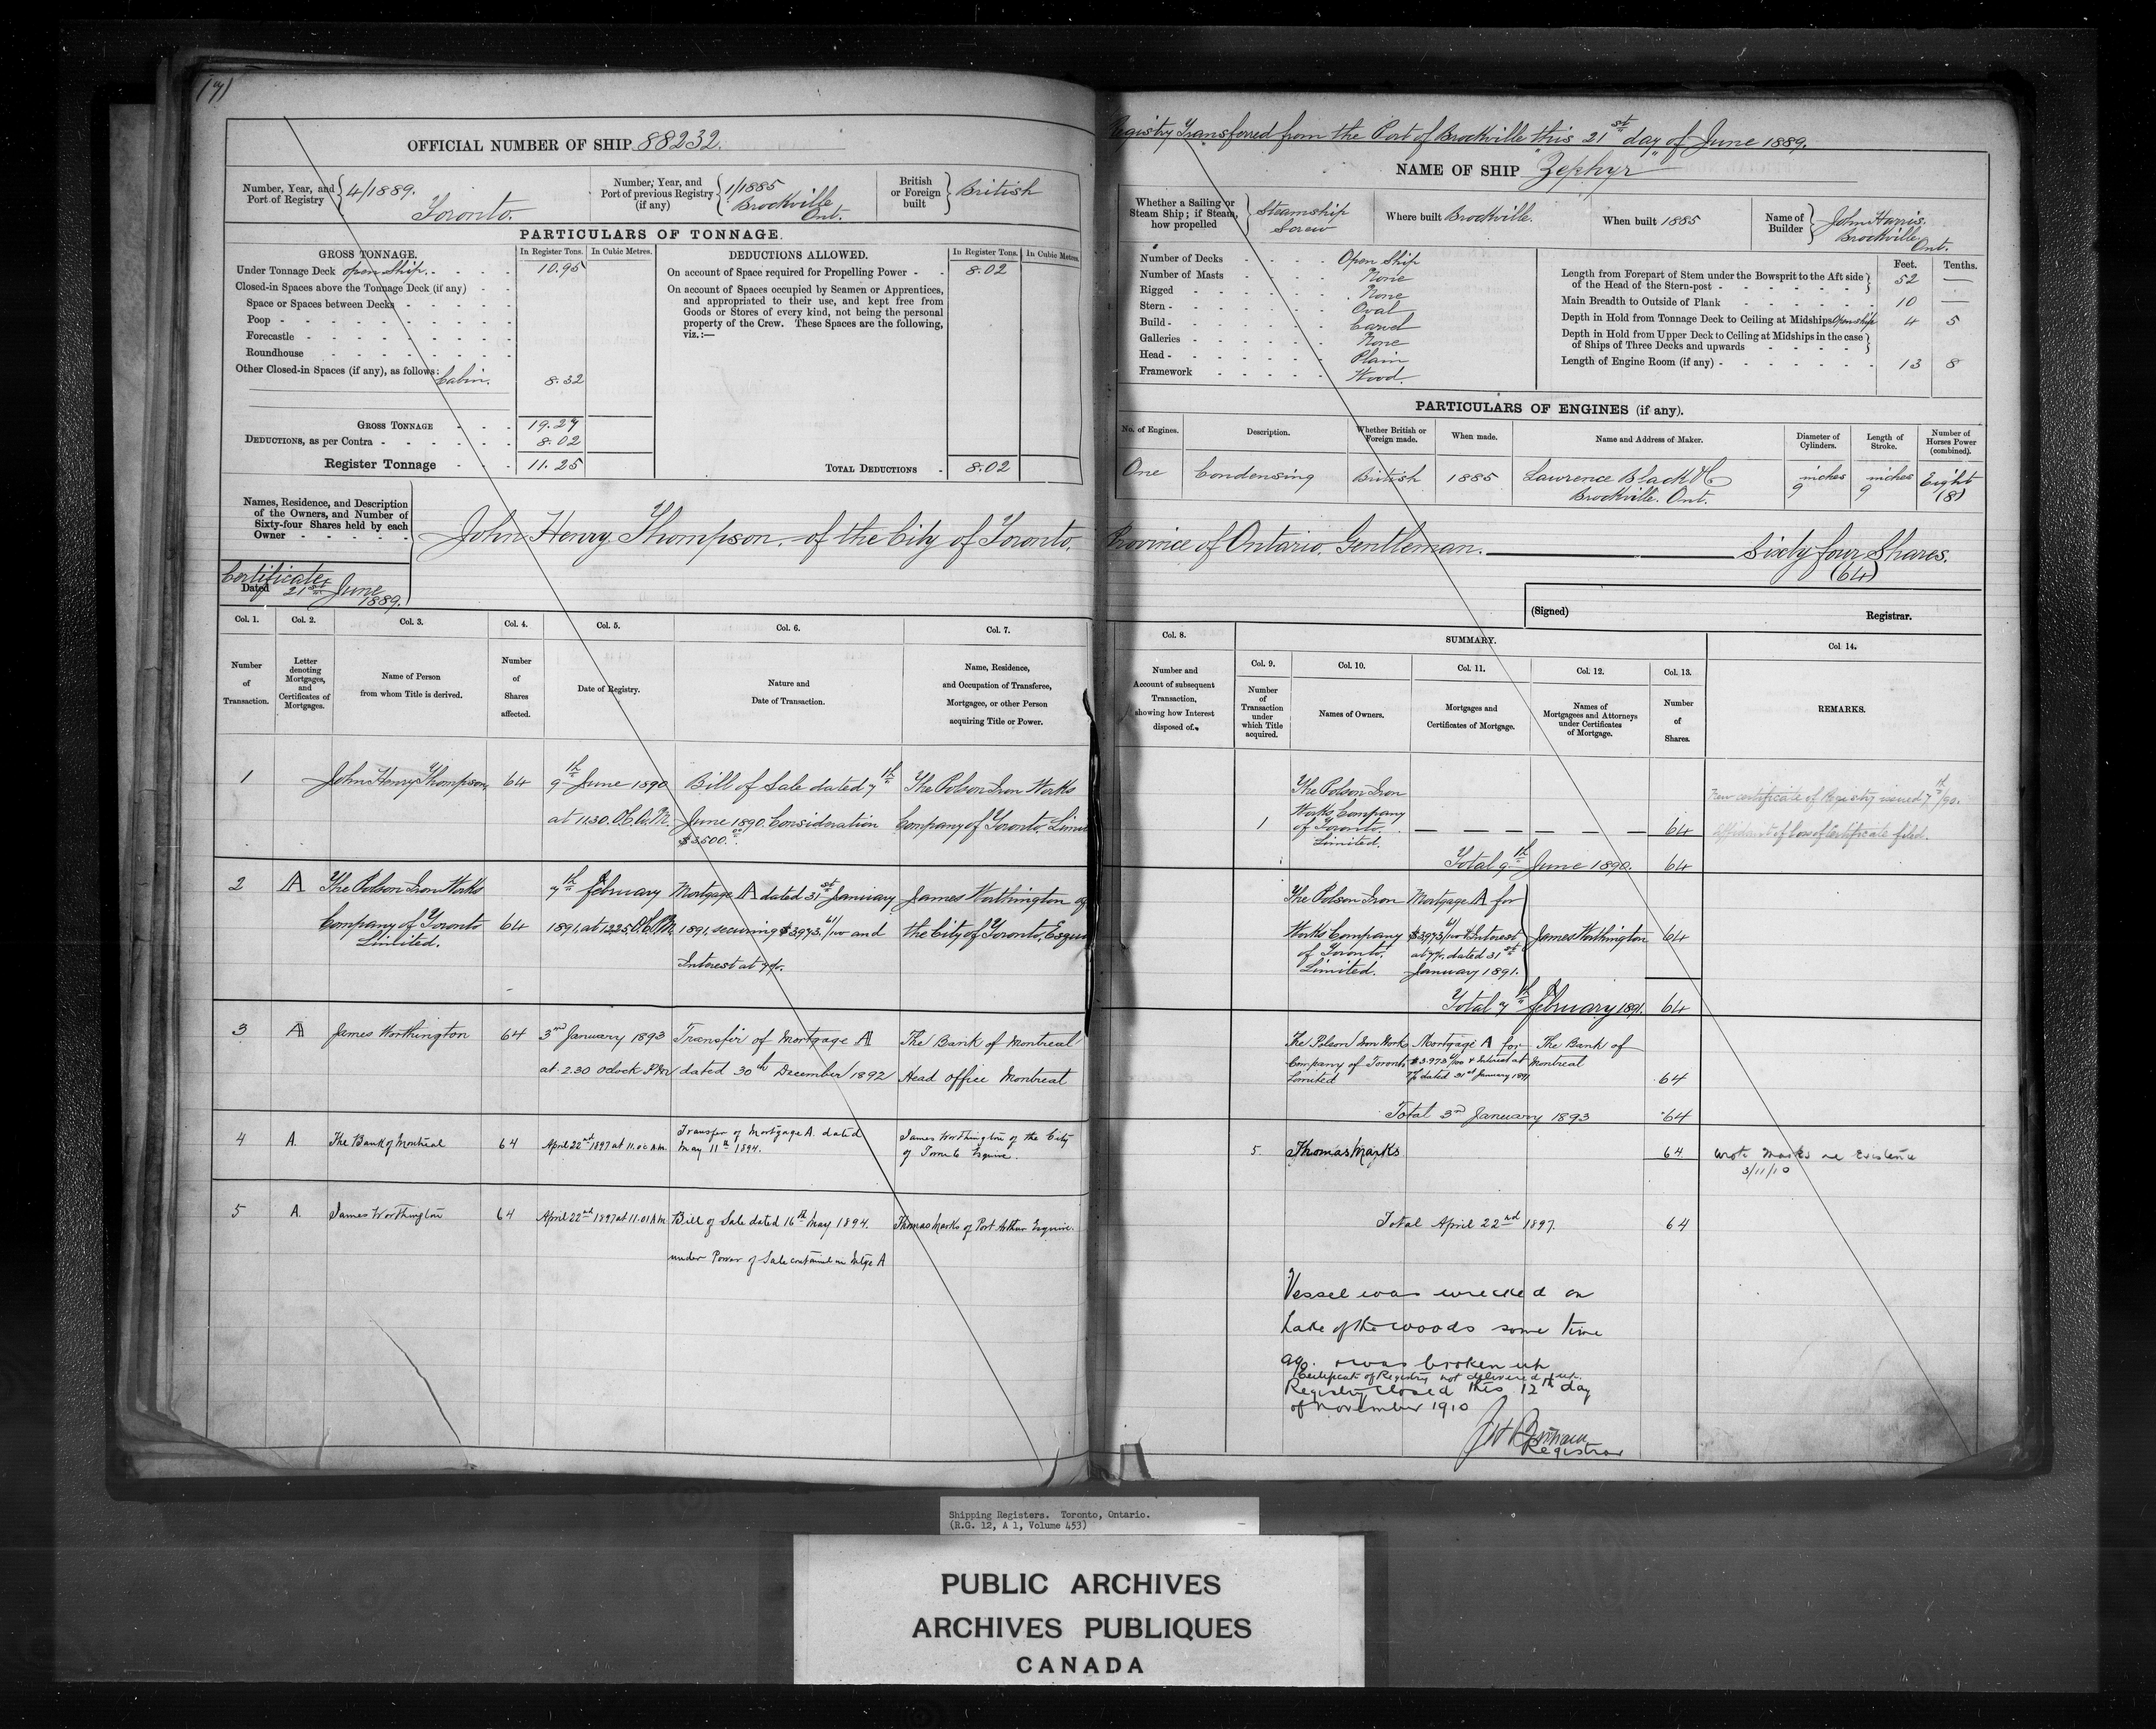 OFFICIAL NUMBER OF SHIP 88232.
Number, Year, and Port of Registry 4/1889. Toronto.
Number, Year, and Port of previous Registry (if any) 1/1885 Brockville Ont.
British or Foreign built British
PARTICULARS OF TONNAGE.
GROSS TONNAGE. In Register Tons. In Cubic Metres.
Under Tonnage Deck open Ship. 10.95
Closed-in Spaces above the Tonnage Deck (if any)
Space or Spaces between Decks
Poop
Forecastle
Roundhouse
Other Closed-in Spaces (if any), as follows: Cabin. 8.32
GROSS TONNAGE 19.27
DEDUCTIONS, as per Contra 8.02
Register Tonnage 11.25
DEDUCTIONS ALLOWED. In Register Tons. In Cubic Metres.
On account of Space required for Propelling Power 8.02
On account of Spaces occupied by Seamen or Apprentices,
and appropriated to their use, and kept free from
Goods or Stores of every kind, not being the personal
property of the Crew. These Spaces are the following,
viz.:—
TOTAL DEDUCTIONS 8.02
Names, Residence, and Description
of the Owners, and Number of
Sixty-four Shares held by each
Owner
John Henry Thompson, of the City of Toronto,
Certificate
Dated 21st June 1889.
Col. 1. Col. 2. Col. 3. Col. 4. Col. 5. Col. 6. Col. 7.
Number of Transaction.
Letter denoting Mortgages, and Certificates of Mortgages.
Name of Person from whom Title is derived.
Number of Shares affected.
Date of Registry.
Nature and Date of Transaction.
Name, Residence, and Occupation of Transferee, Mortgagee, or other Person acquiring Title or Power.
1 John Henry Thompson 64 9th June 1890 Bill of Sale dated 7th The Polson Iron Works
at 11.30. O.C. A.M. June 1890. Consideration Company of Toronto, Limi
$3500.00
2 A The Polson Iron Works 7th February Mortgage A dated 31st January James Worthington of
Company of Toronto 64 1891, at 12.25, O.C. P.M. 1891, securing $3,973.61/100 and the City of Toronto, Esqui
Limited. Interest at 7%.
3 A James Worthington 64 3rd January 1893 Transfer of Mortgage A The Bank of Montreal
at 2.30 O'clock P.M dated 30th December 1892 Head Office Montreal
4 A. The Bank of Montreal 64 April 22nd 1897 at 11.00 A.M. Transfer of Mortgage A. dated James Worthington of the City
May 11th 1894. of Toronto Esquire.
5 A. James Worthington 64 April 22nd 1897 at 11.01 A.M. Bill of Sale dated 16th May 1894. Thomas Marks of Port Arthur Esquire.
under Power of Sale contained in Mtge A
Registry Transferred from the Port of Brockville this 21st day of June 1889.
NAME OF SHIP "Zephyr"
Whether a Sailing or Steam Ship; if Steam, how propelled Steamship Screw
Where built Brockville.
When built 1885
Name of Builder John Harris. Brockville, Ont.
Number of Decks Open Ship
Number of Masts None
Rigged None
Stern Oval
Build Carvel
Galleries None
Head Plain
Framework Wood.
Feet. Tenths.
Length from Forepart of Stem under the Bowsprit to the Aft side
of the Head of the Stern-post 52 —
Main Breadth to Outside of Plank 10 —
Depth in Hold from Tonnage Deck to Ceiling at Midships Open ship 4 5
Depth in Hold from Upper Deck to Ceiling at Midships in the case
of Ships of Three Decks and upwards
Length of Engine Room (if any) 13 8
PARTICULARS OF ENGINES (if any).
No. of Engines. Description. Whether British or Foreign made. When made. Name and Address of Maker. Diameter of Cylinders. Length of Stroke. Number of Horses Power (combined).
One Condensing British 1885 Lawrence Black & Co Brockville. Ont. 9 inches 9 inches Eight (8)
Province of Ontario, Gentleman. Sixty four Shares.
(64)
(Signed) Registrar.
Col. 8. SUMMARY. Col 14.
Col. 9. Col. 10. Col. 11. Col. 12. Col. 13.
Number and Account of subsequent Transaction, showing how Interest disposed of.
Number of Transaction under which Title acquired.
Names of Owners.
Mortgages and Certificates of Mortgage.
Names of Mortgagees and Attorneys under Certificates of Mortgage.
Number of Shares.
REMARKS.
1 The Polson Iron Works Company of Toronto Limited. — — — — — — 64
New certificate of Registry issued 7th/90.
Affidavit of loss of Certificate filed.
Total 9th June 1890. 64
The Polson Iron Works Company of Toronto. Limited.
Mortgage A for $3973.61/100 & Interest at 7%, dated 31st January 1891.
James Worthington 64
Total 7th February 1891. 64
The Polson Iron Work Company of Toronto Limited
Mortgage A for $3.973.61/100 & Interest at 7% dated 31st January 1891
The Bank of Montreal 64
Total 3rd January 1893 64
5. Thomas Marks 64 Wrote Marks re Existence
3/11/10
Total April 22nd 1897. 64
Vessel was wrecked on
Lake of the Woods some time
ago. & was broken up
Certificate of Registry not delivered up.
Registry closed this 12th day
of November 1910
Registrar
Shipping Registers. Toronto, Ontario.
(R.G. 12, A 1, Volume 453)
PUBLIC ARCHIVES
ARCHIVES PUBLIQUES
CANADA